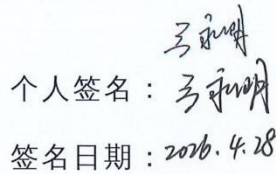 马永明
个人签名：马永明
签名日期：2026.4.28